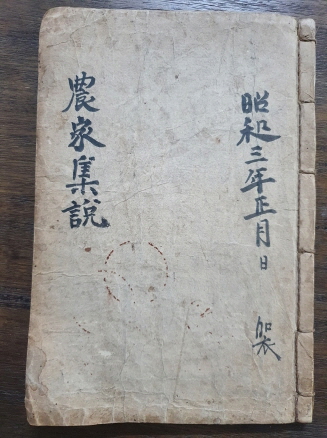 昭和三年正月日 加衣
農家集說